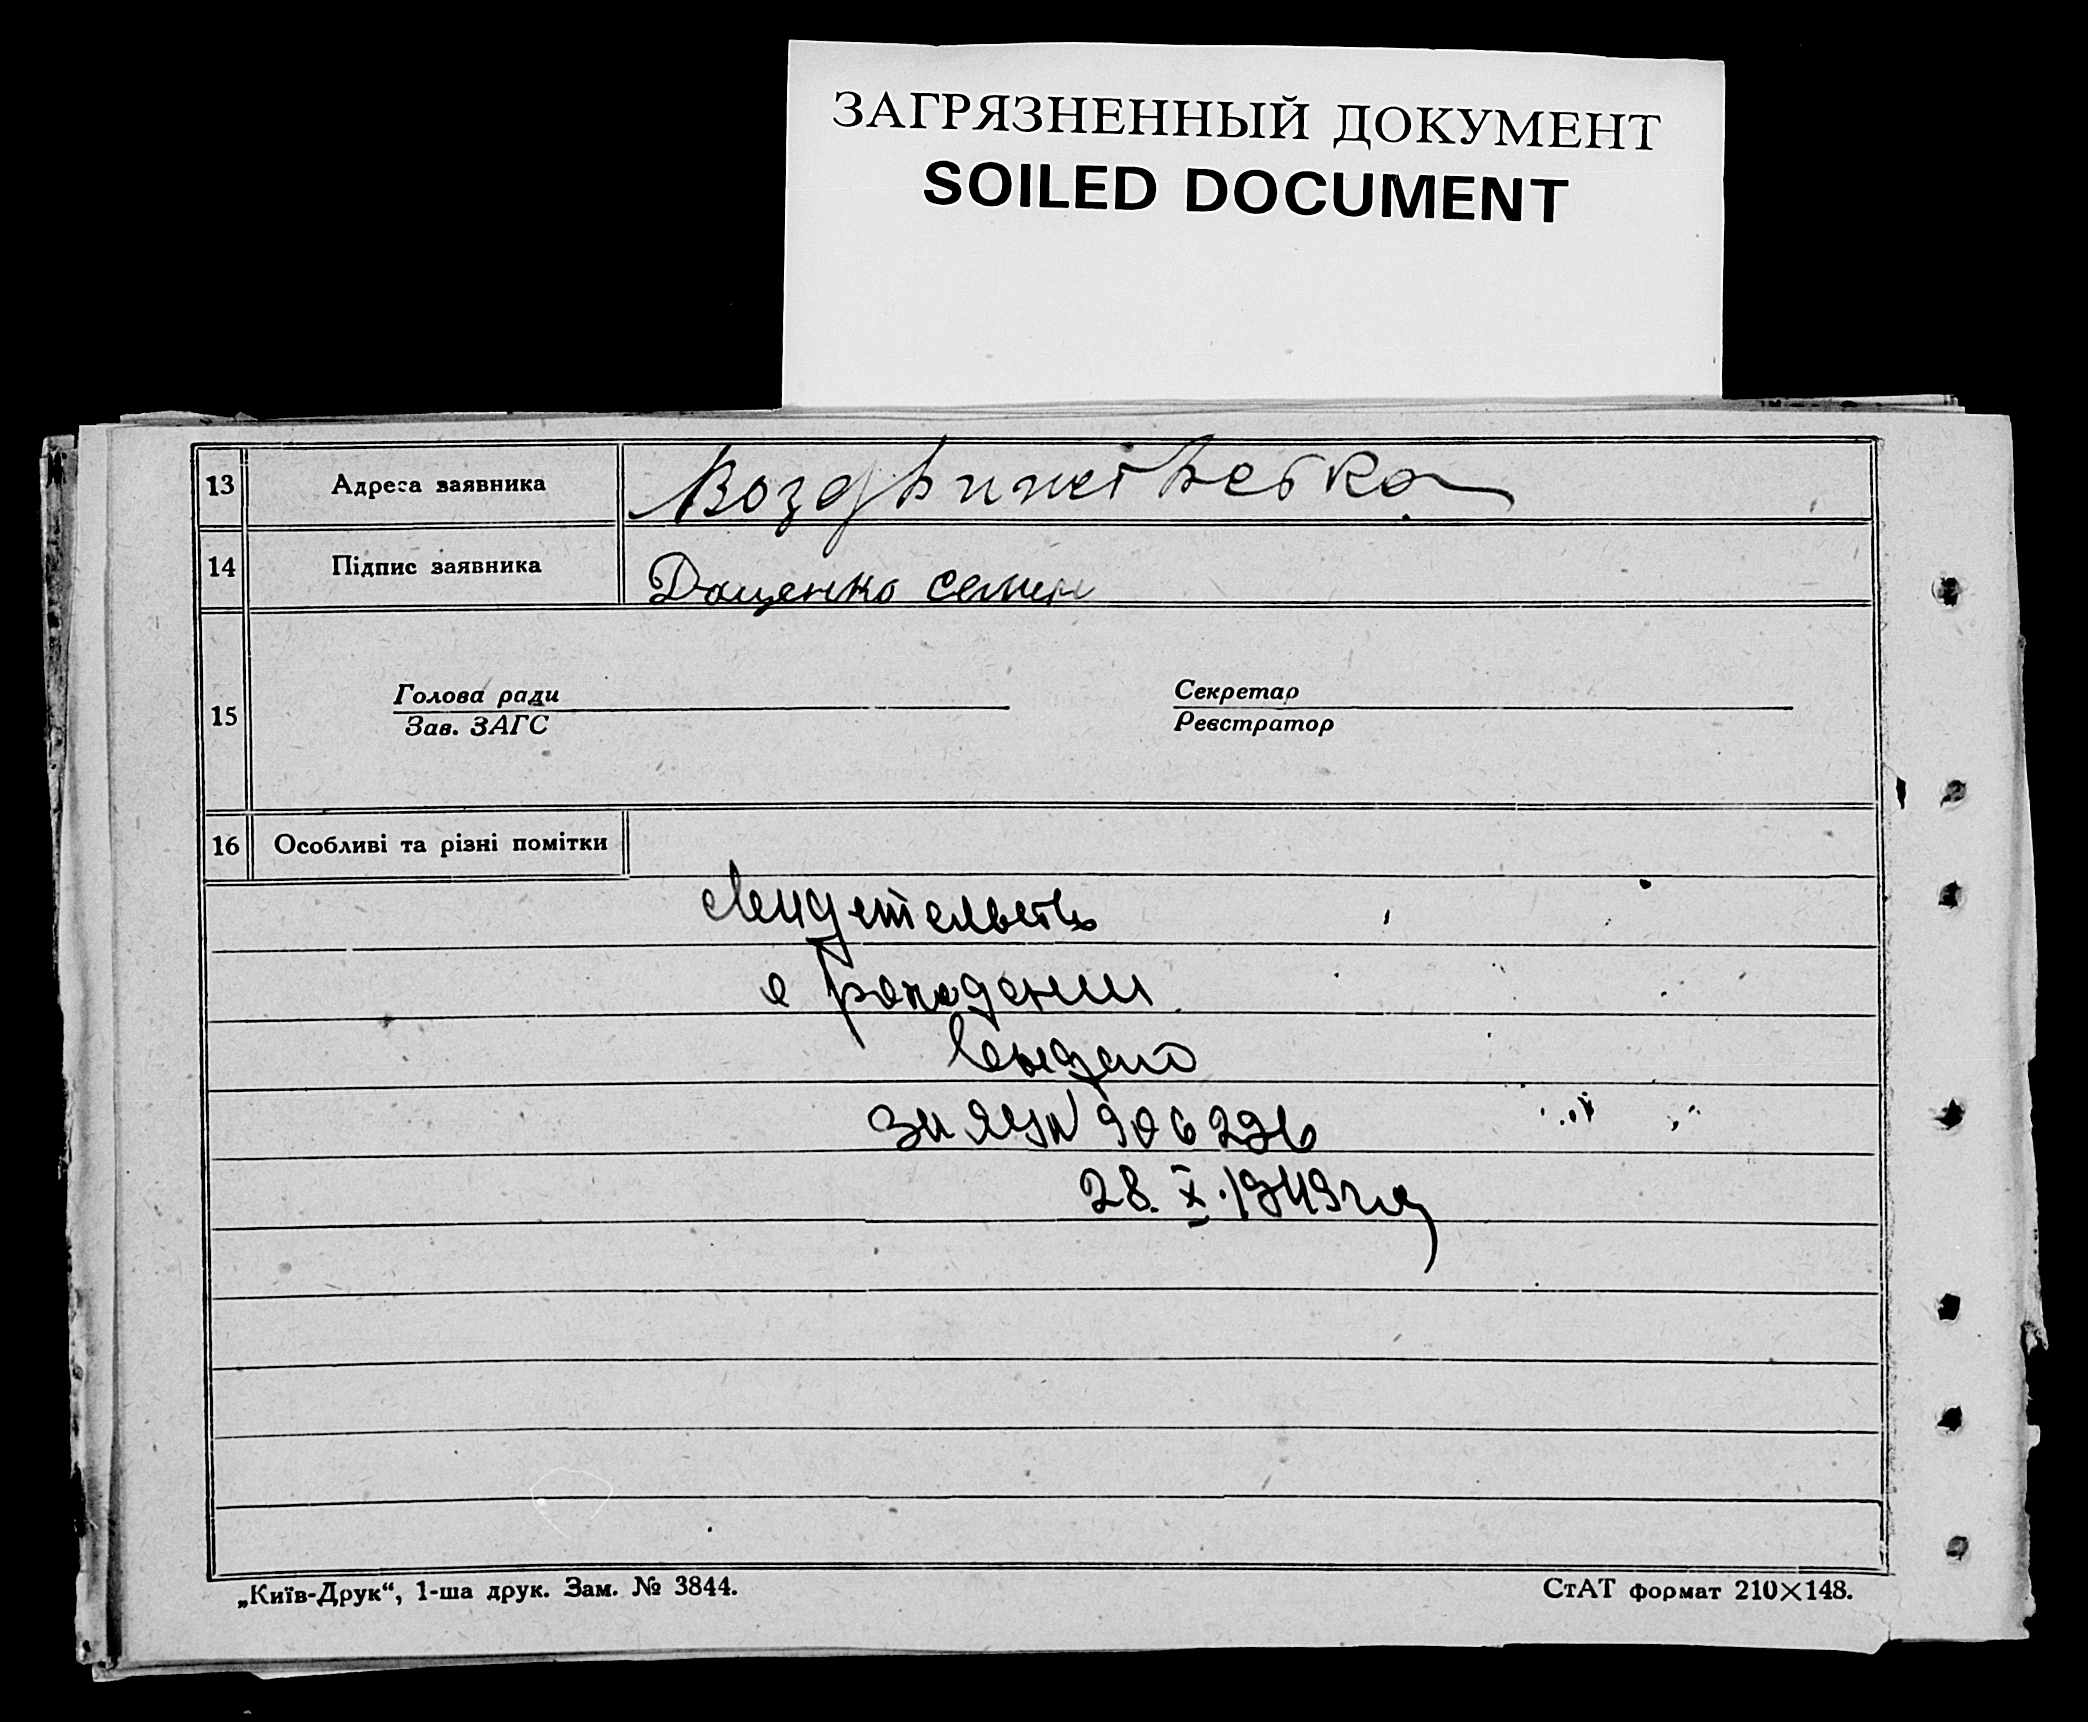 ЗАГРЯЗНЕННЫЙ ДОКУМЕНТ
SOILED DOCUMENT
13 Адреса заявника
14 Підпис заявника Дощенко семен
15 Голова ради
Зав. ЗАГС
Секретар
Реєстратор
16 Особливі та різні помітки
Свидетельство
о рождении
выдано
за ЯУ № 906226
28. X. 1949 год
„Київ-Друк“, 1-ша друк. Зам. № 3844.
СтАТ формат 210×148.